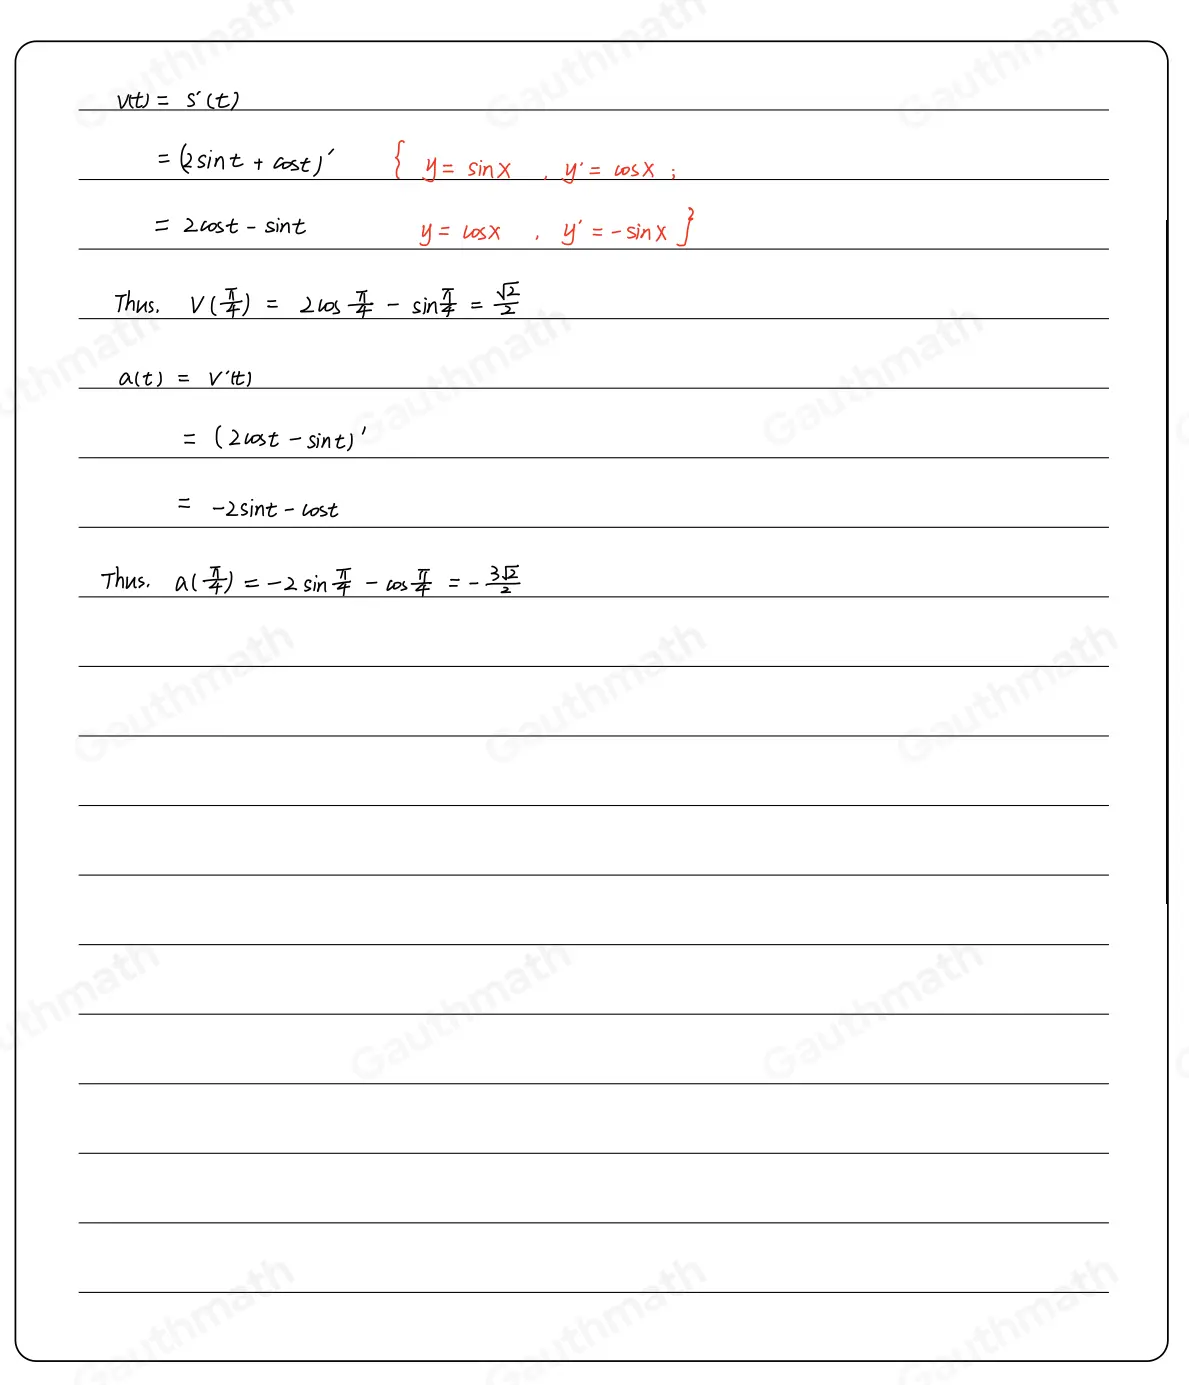 v(t) = s′(t)
= (2sint + cost)′ { y = sinx , y′ = cosx ;
= 2cost - sint y = cosx , y′ = -sinx }
Thus. V(π/4) = 2cos π/4 - sin π/4 = √2/2
a(t) = v′(t)
= (2cost - sint)′
= -2sint - cost
Thus. a(π/4) = -2 sin π/4 - cos π/4 = - 3√2/2